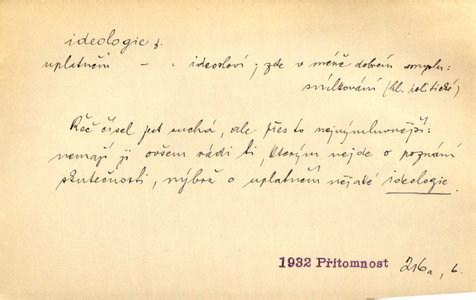 ideologie f.
uplatnění – . ideosloví; zde v méně dobrém smyslu:
smilkování (hl. politické)
Řeč čísel jest suchá, ale přes to nejvýmluvnější:
nemají ji ovšem rádi ti, kterým nejde o poznání
skutečnosti, nýbrž o uplatnění nějaké ideologie.
1932 Přítomnost 216a,